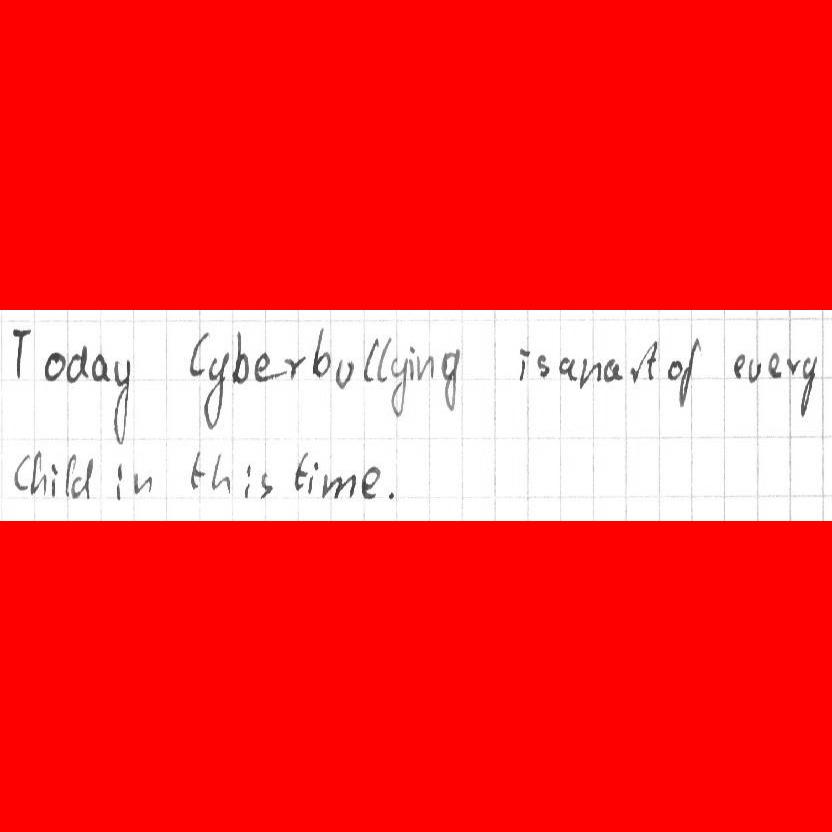 Today Cyberbullying is a part of every
Child in this time.